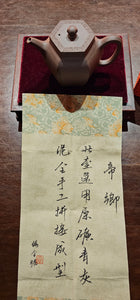 帝鄉
此壺選用原礦青灰
泥全手工拼接成型